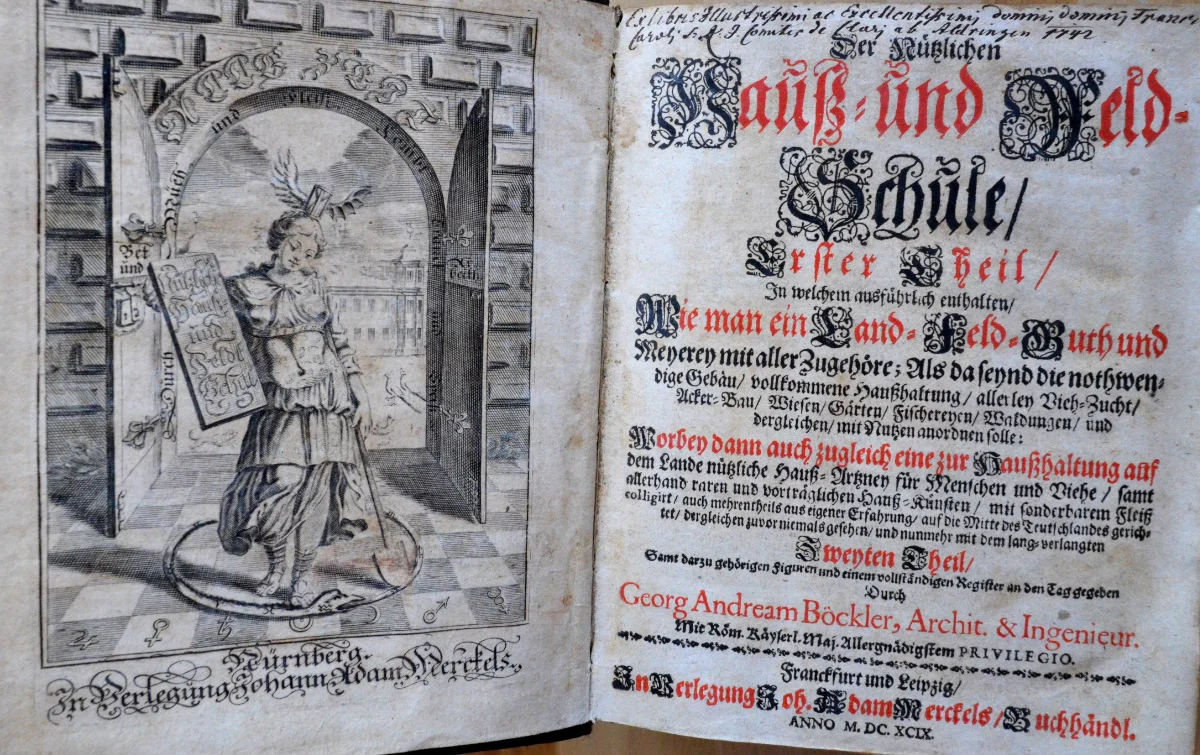 und Fleiß
Bet
und
Durch
Nützliche
Hauß
und
Feldt
Schul
Nürnberg.
In Verlegung Johann Adam Merckels.
Ex libris Illustrissimi ac Excellentissimi domini, domini, Franc:
Caroli S. R. I. Comitis de Clarj ab Aldringen 1742
Der Nützlichen
Hauß- und Feld-
Schule/
Erster Theil/
In welchem ausführlich enthalten/
Wie man ein Land- Feld- Guth und
Meyerey mit aller Zugehöre; Als da seynd die nothwen-
dige Gebäu/ vollkommene Haußhaltung/ allerley Vieh-Zucht/
Acker-Bau/ Wiesen/ Gärten/ Fischereyen/ Waldungen/ und
dergleichen/ mit Nutzen anordnen solle:
Worbey dann auch zugleich eine zur Haußhaltung auf
dem Lande nützliche Hauß-Artzney für Menschen und Viehe/ samt
allerhand raren und vorträglichen Hauß-Künsten/ mit sonderbarem Fleiß
colligirt/ auch mehrentheils aus eigener Erfahrung/ auf die Mitte des Teutschlandes gerich-
tet/ dergleichen zuvor niemals gesehen/ und nunmehr mit dem lang-verlangten
Zweyten Theil/
Samt darzu gehörigen Figuren und einem vollständigen Register an den Tag gegeben
Durch
Georg Andream Böckler, Archit. & Ingenieur.
Mit Röm. Käyserl. Maj. Allergnädigstem PRIVILEGIO.
Franckfurt und Leipzig/
In Verlegung Joh. Adam Merckels/ Buchhändl.
ANNO M. DC. XCIX.